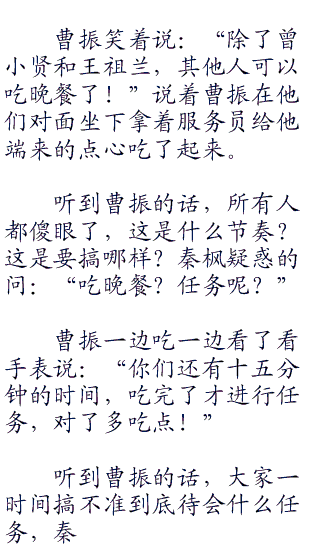 曹振笑着说：“除了曾
小贤和王祖兰，其他人可以
吃晚餐了！”说着曹振在他
们对面坐下拿着服务员给他
端来的点心吃了起来。
听到曹振的话，所有人
都傻眼了，这是什么节奏？
这是要搞哪样？秦枫疑惑的
问：“吃晚餐？任务呢？”
曹振一边吃一边看了看
手表说：“你们还有十五分
钟的时间，吃完了才进行任
务，对了多吃点！”
听到曹振的话，大家一
时间搞不准到底待会什么任
务，秦